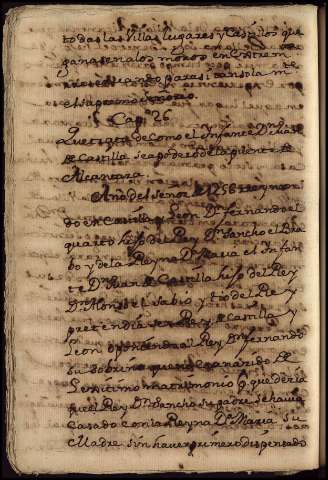 todas las Villas lugares y Castillos que
ganasen a los moros en Estrem
reserbando para si tan solam.te
el supremo dominio
Cap.o 26
Que trata de Como el Infante Dn Juan
de Castilla se apoderó de la puente de
Alcantara
Año del Señor de 1258 reynan
do en Castilla y Leon Dn fernando el
quarto hijo del Rey Dn Sancho el Bra
bo y de la Reyna Da Maria el Infan
te Dn Juan de Castilla hijo del Rey
Dn Alonso el Sabio y tio del Rey
pretendia ser Rey de Castilla y
Leon diciendo al Rey Dn fernando
su sobrino que no era nacido de
Lexitimo matrimonio p.que decia
que el Rey Dn Sancho su padre se havia
Casado con la Reyna Da Maria su
Madre sin haver primero dispensado